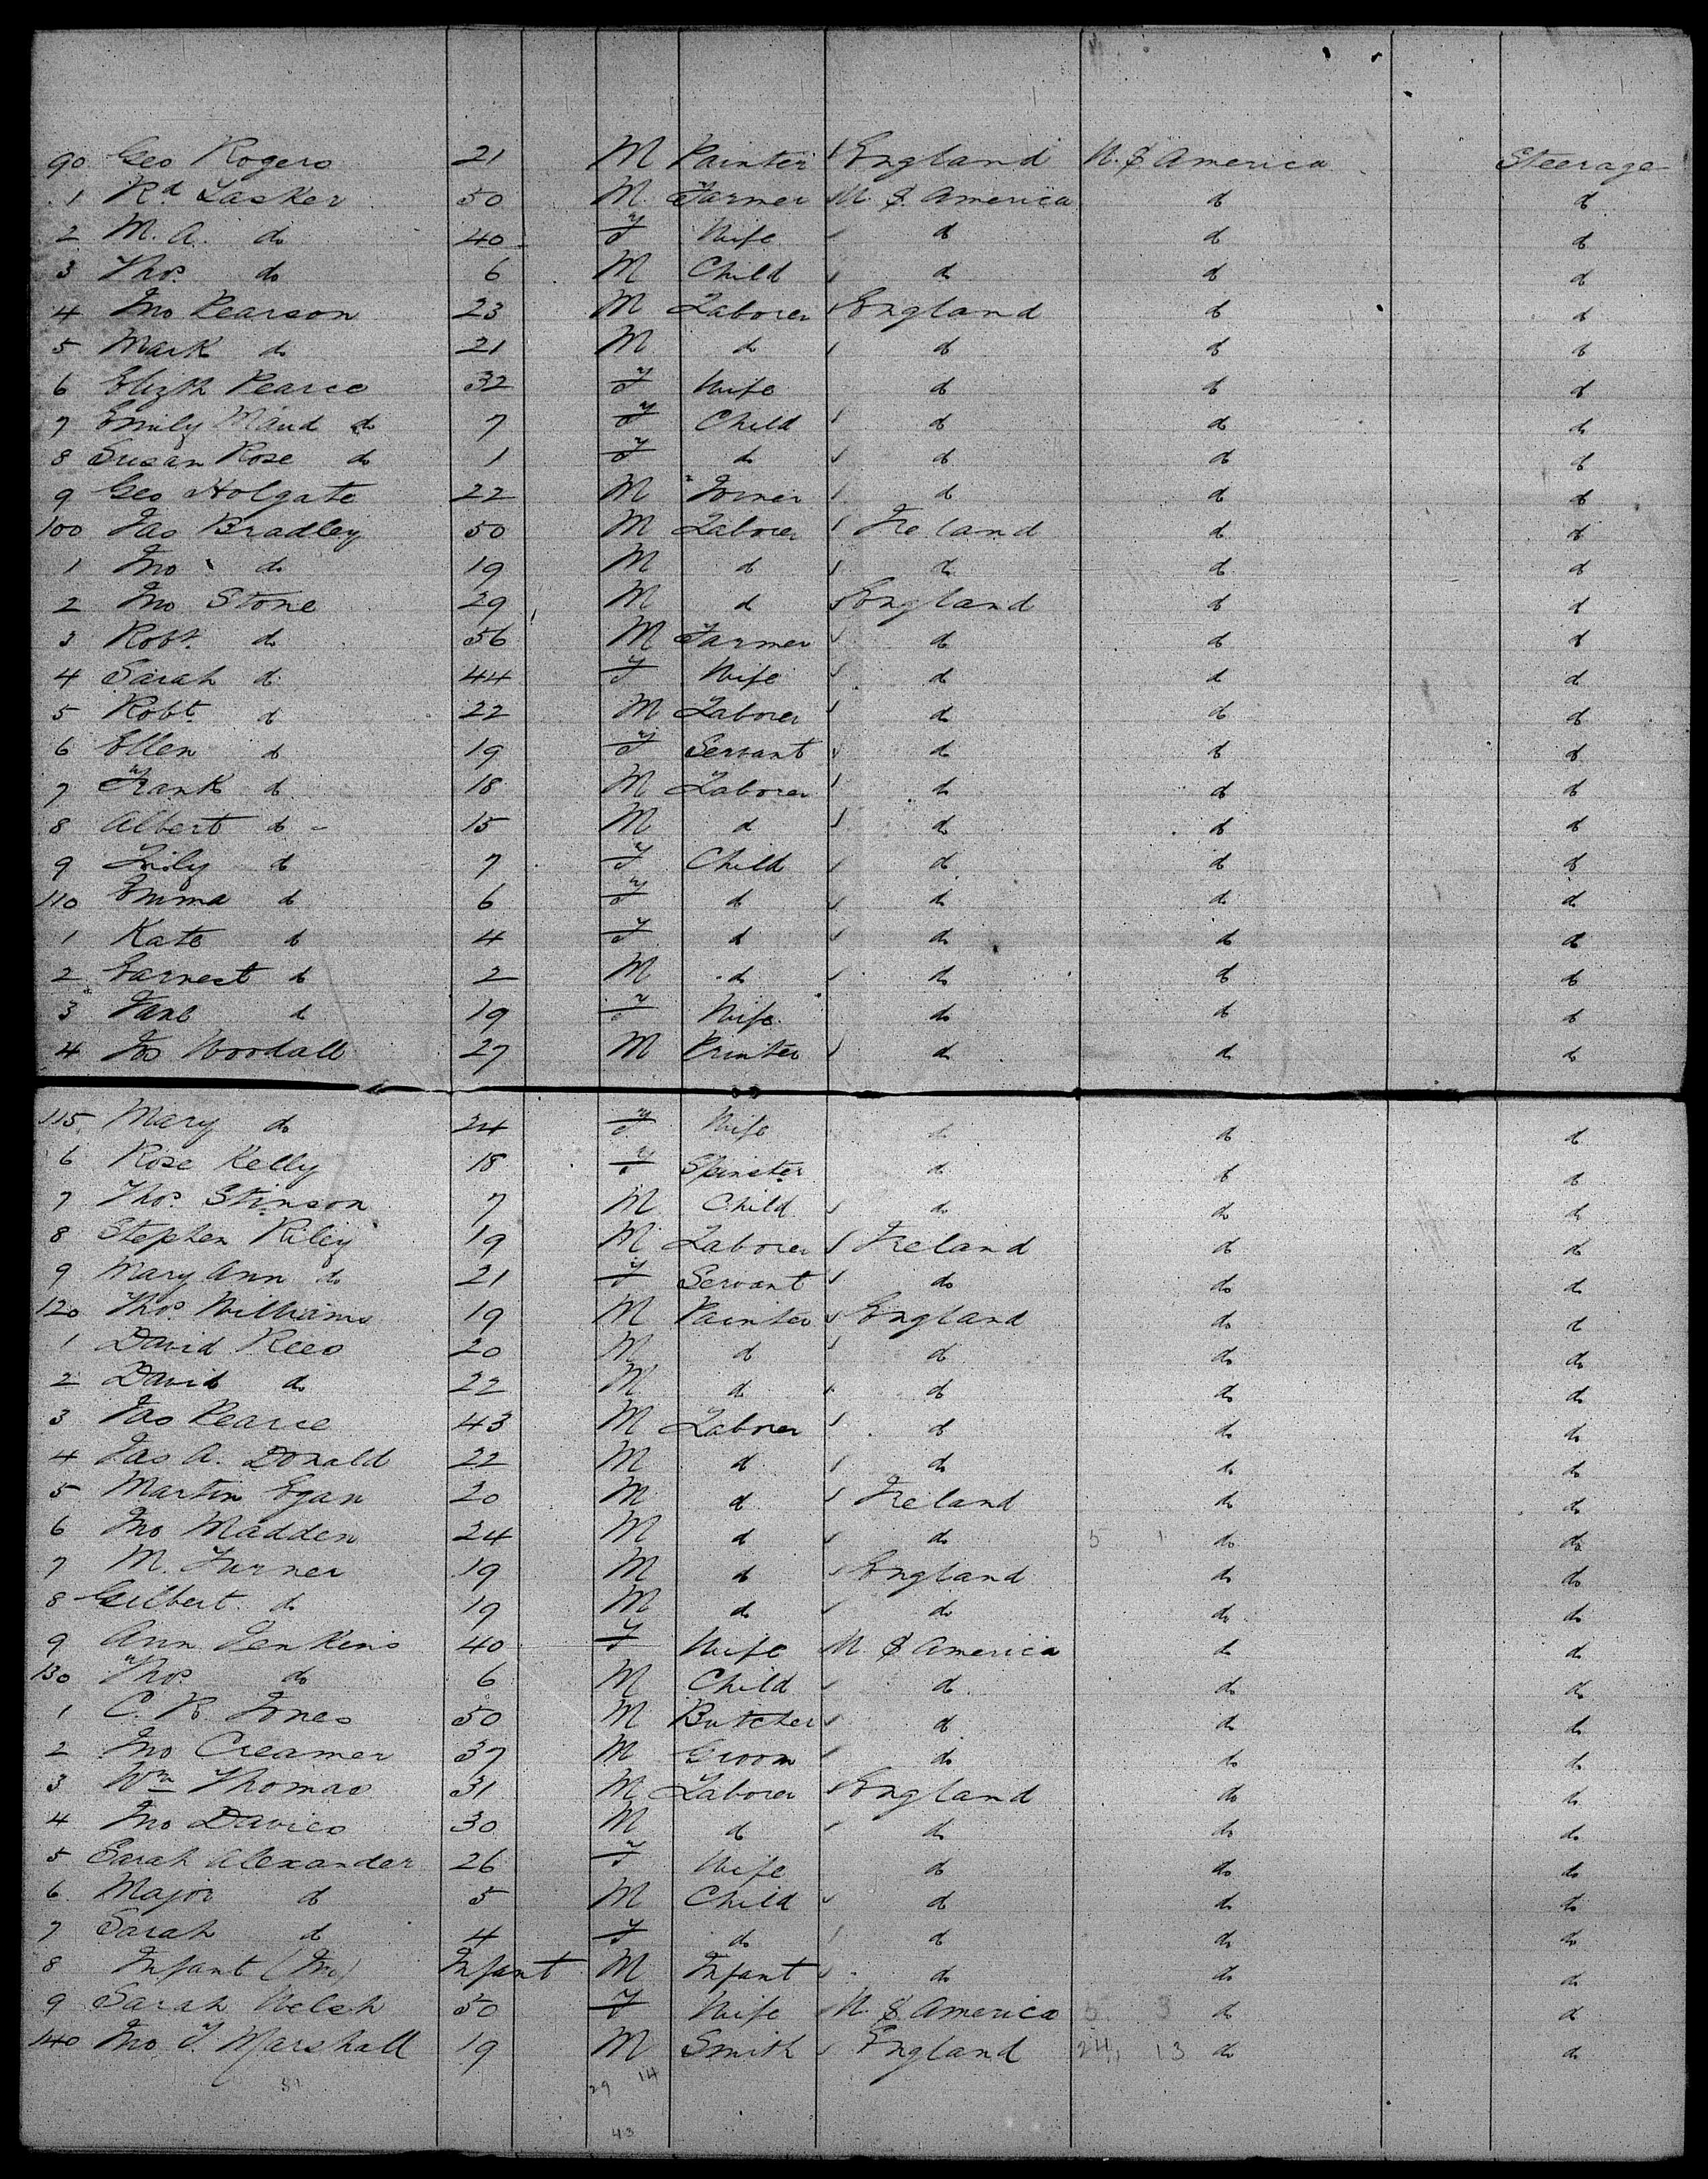 90 Geo Rogers 21 M Painter England U. S America Steerage
1 Rd Lasker 50 M Farmer U. S. America do do
2 M. A. do 40 F Wife do do do
3 Thos do 6 M Child do do do
4 Jno Pearson 23 M Laborer England do do
5 Mark do 21 M do do do do
6 Elizth Pearce 32 F Wife do do do
7 Emily Maud do 7 F Child do do do
8 Susan Rose do 1 F do do do do
9 Geo Holgate 22 M Joiner do do do
100 Jas Bradley 50 M Laborer Ireland do do
1 Jno do 19 M do do do do
2 Jno Stone 29 M do England do do
3 Robt. do 56 M Farmer do do do
4 Sarah do 44 F Wife do do do
5 Robt do 22 M Laborer do do do
6 Ellen do 19 F Servant do do do
7 Frank do 18 M Laborer do do do
8 Albert do 15 M do do do do
9 Lily do 7 F Child do do do
110 Emma do 6 F do do do do
1 Kate do 4 F do do do do
2 Earnest do 2 M do do do do
3 Jane do 19 F Wife do do do
4 Jos Woodall 27 M Printer do do do
115 Mary do 24 F Wife do do do
6 Rose Kelly 18 F Spinster do do do
7 Thos. Stinson 7 M Child do do do
8 Stephen Riley 19 M Laborer Ireland do do
9 Mary Ann do 21 F Servant do do do
120 Thos Williams 19 M Painter England do do
1 David Rees 20 M do do do do
2 David do 22 M do do do do
3 Jas Pearce 43 M Laborer do do do
4 Jas A. Donald 22 M do do do do
5 Martin Egan 20 M do Ireland do do
6 Jno Madden 24 M do do 5 1 do do
7 M. Turner 19 M do England do do
8 Gilbert do 19 M do do do do
9 Ann Jenkins 40 F Wife U. S America do do
130 Thos do 6 M Child do do do
1 C. R. Jones 50 M Butcher do do do
2 Jno Creamer 37 M Groom do do do
3 Wm Thomas 31 M Laborer England do do
4 Jno Davies 30 M do do do do
5 Sarah Alexander 26 F Wife do do do
6 Major do 5 M Child do do do
7 Sarah do 4 F do do do do
8 Infant (Jno) Infant M Infant do do do
9 Sarah Welsh 50 F Wife U. S. America 5 3 do do
140 Jno. T. Marshall 19 M Smith England 24, 13 do do
51 29 14
43